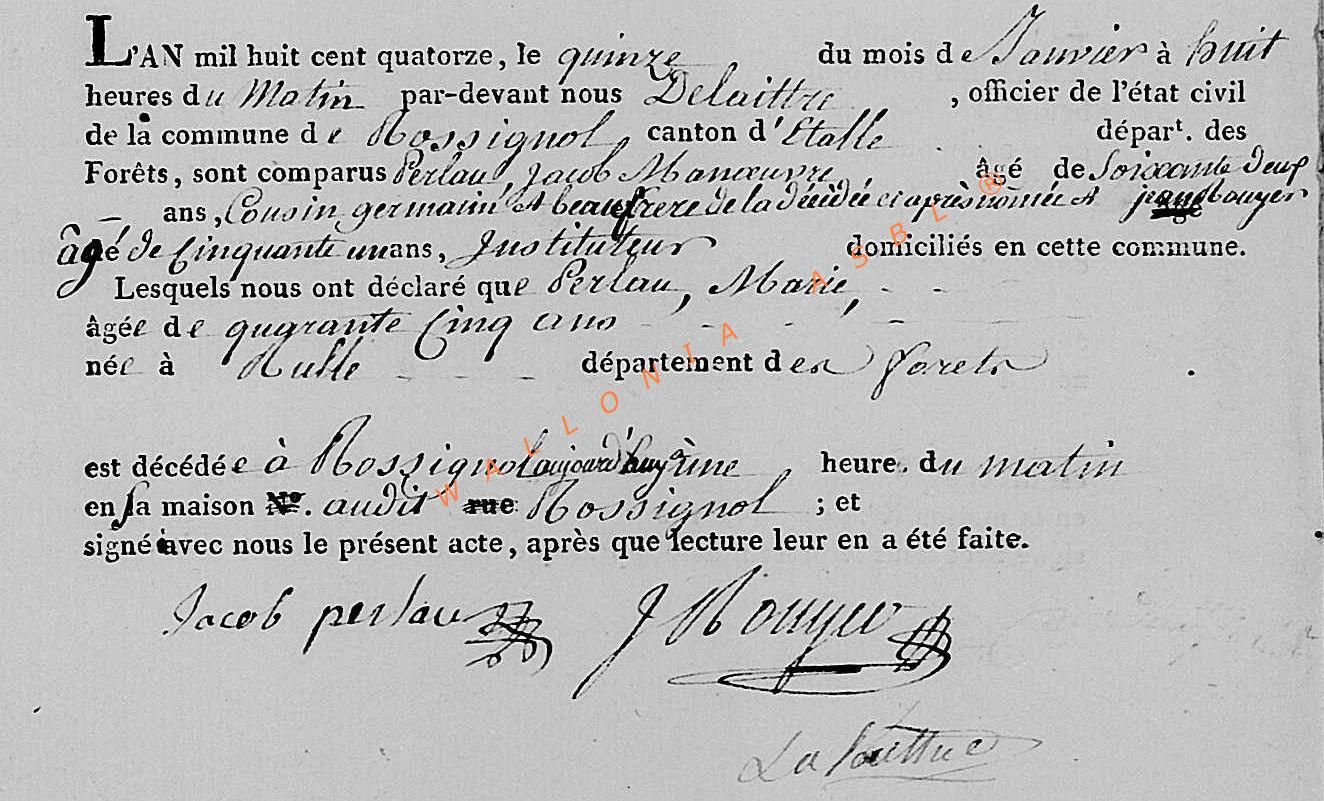 L'AN mil huit cent quatorze, le quinze du mois de Janvier à huit
heures du Matin par-devant nous Delaittre, officier de l'état civil
de la commune de Rossignol, canton d'Etalle dépar<sup>t</sup>. des
Forêts, sont comparus Perlau, Jacob Manœuvre, âgé de Soixante Deux
ans, Cousin germain et beaufrere de la décédée ci après nomée et jean bouyer
âgé de Cinquante un ans, Instituteur domiciliés en cette commune.
Lesquels nous ont déclaré que Perlau, Marie,
âgée de quarante Cinq ans
née à Rulle département des forets.
est décédée à Rossignol aujourd'huy à une heure. du matin
en sa maison N°. audit rue Rossignol ; et
signé avec nous le présent acte, après que lecture leur en a été faite.
Jacob perlau J Rouyer
WALLONIA ASBL ®